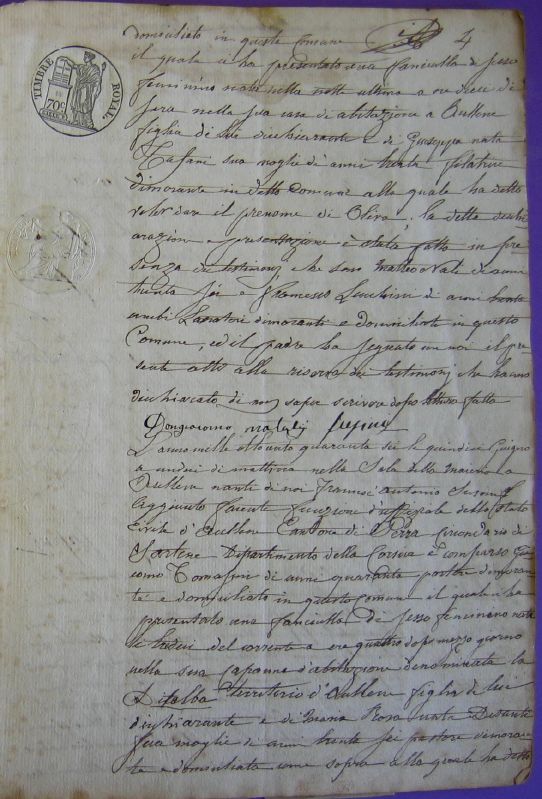 TIMBRE ROYAL
70c
4
domiciliato in questo Comune
il quale ci ha presentato una fanciulla di sesso
femminino nata nella notte ultima a ore dieci di
sera nella sua casa di abitazione a Aullene
figlia di lui dichiarante e di Giuseppa nata
Tafani sua moglie d'anni trenta filatrice
dimorante in detto Comune alla quale ha detto
voler dare il prenome di Oliva, la detta dichi
arazione e presentazione è stata fatta in pre
senza di testimonj che sono Matteo Natali d'anni
trenta sei e Francesco Lucchini di anni trenta
ambi Lavoratori dimoranti e domiciliati in questo
Comune, ed il padre ha segnato con noi il pre
sente atto alla riserva dei testimonj che hanno
dichiarato di non saper scrivere dopo lettura fatta
Dongiacomo
L'anno mille ottocento quaranta sei li quindici Giugno
a undici di mattina nella Sala della Maeria a
Aullene nanti di noi Francesc'Antonio
Aggiunto facente funzione d'uffiziale dello Stato
Civile d'Aullene Cantone di Serra circondario di
Sartene Dipartimento della Corsica è comparso Gia
como Tomasini di anni quaranta pastore dimoran
te e domiciliato in questo Comune il quale ci ha
presentato una fanciulla di sesso feminino nata
li tredici del corrente a ore quattro dopo mezzo giorno
nella sua capanna d'abitazione denominata la
territorio d'Aullene figlia di lui
dichiarante e di Maria Rosa nata
sua moglie di anni trenta sei pastore dimoran
te e domiciliata come sopra alla quale ha detto